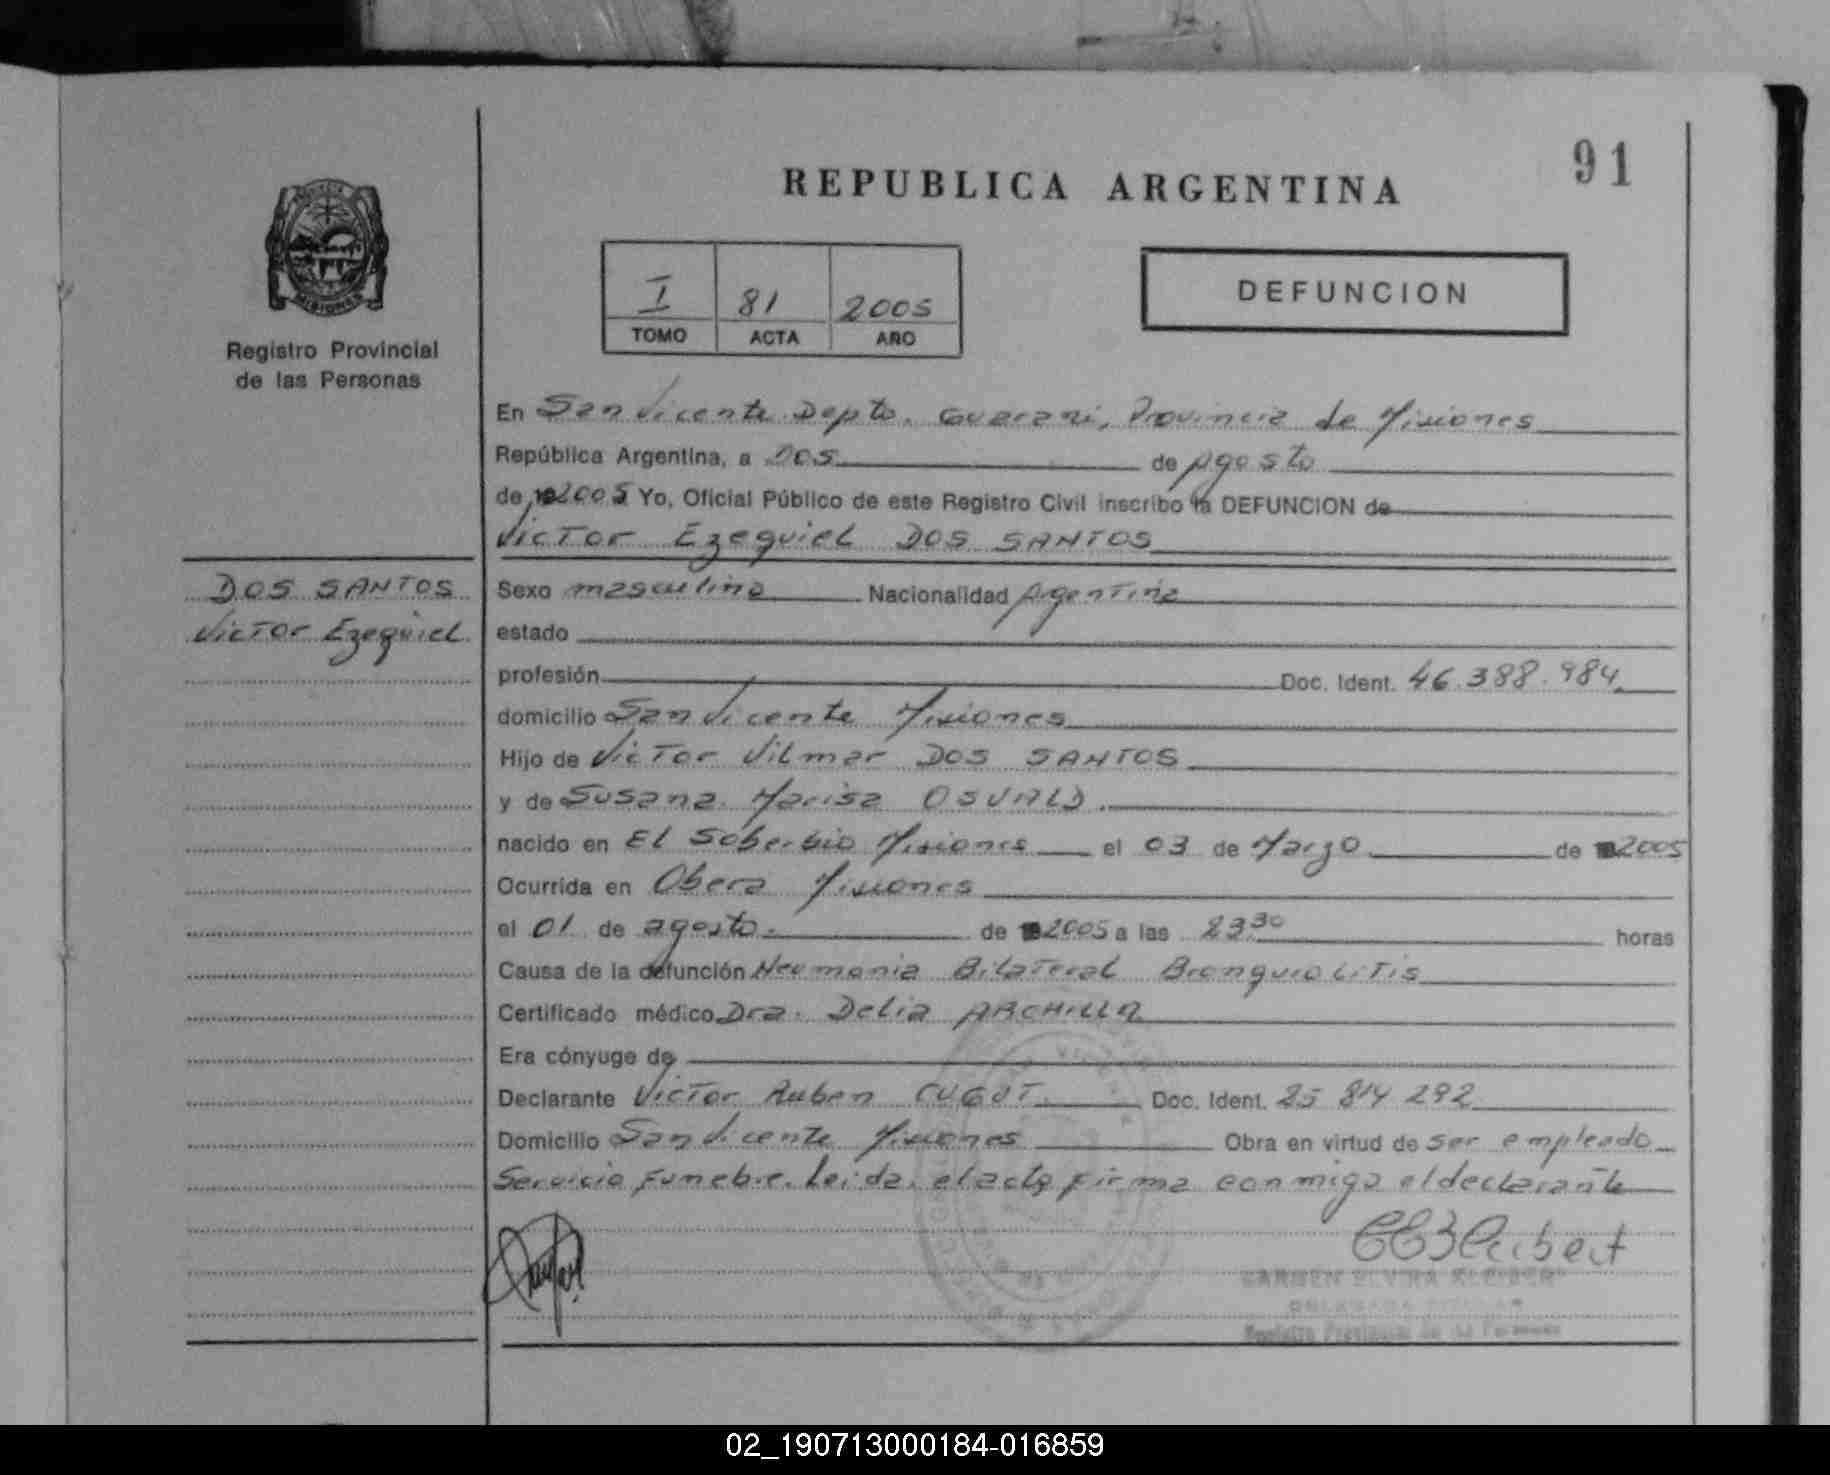 91
REPUBLICA ARGENTINA
MISIONES
I 81 2005
TOMO ACTA AÑO
DEFUNCION
Registro Provincial
de las Personas
En San Vicente Depto. Guarani, Provincia de Misiones
República Argentina, a Dos de Agosto
de 2005 Yo, Oficial Público de este Registro Civil inscribo la DEFUNCION de
Victor Ezequiel DOS SANTOS
DOS SANTOS
Victor Ezequiel
Sexo masculino Nacionalidad Argentina
estado
profesión Doc. Ident. 46.388.984
domicilio San Vicente Misiones
Hijo de Victor Vilmar DOS SANTOS
y de Susana Marisa OSVALD.
nacido en El Soberbio Misiones el 03 de Marzo de 2005
Ocurrida en Obera Misiones
el 01 de agosto. de 2005 a las 23 30 horas
Causa de la defunción Neumonia Bilateral Bronquiolitis
Certificado médico Dra. Delia ARCHILLA
Era cónyuge de
Declarante Victor Ruben CUGUT. Doc. Ident. 25 814 292
Domicilio San Vicente Misiones Obra en virtud de ser empleado
Servicio Funebre. Leida, el acta firma conmigo el declarante
CARMEN ELVIRA KLEIBER
DELEGADA TITULAR
Registro Provincial de las Personas
02_190713000184-016859